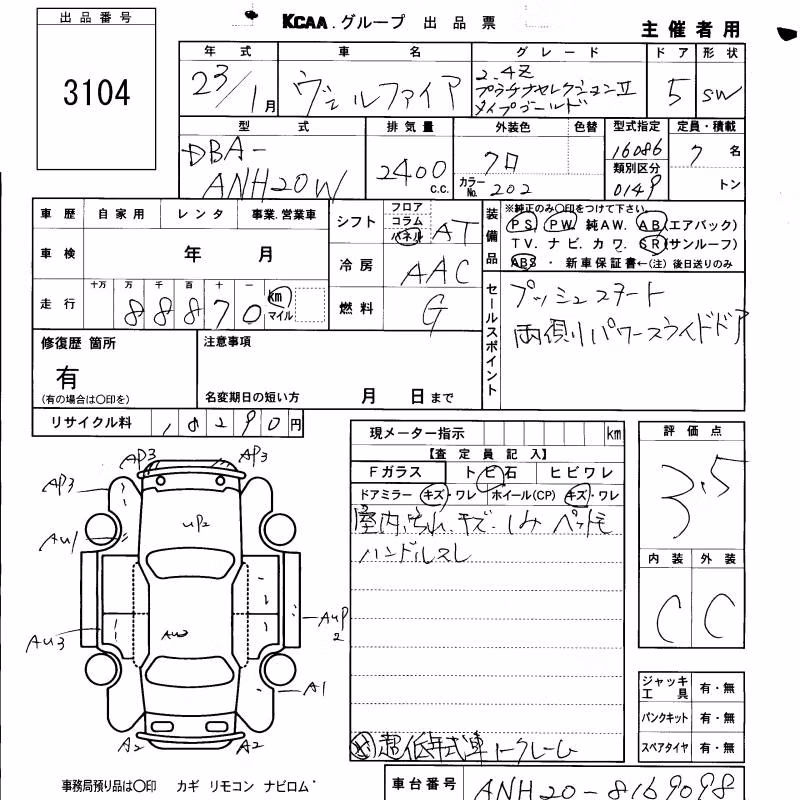 出品番号
3104
KCAA.グループ 出品票
主催者用
年式 車名 グレード ドア 形状
23/1月 ヴェルファイア 2.4Z プラチナセレクションⅡ タイプゴールド 5 SW
型式 排気量 外装色 色替 型式指定 定員・積載
DBA-ANH20W 2400c.c. クロ カラーNo. 202 16086 7名
類別区分 0149 トン
車歴 自家用 レンタ 事業.営業車
シフト フロア コラム パネル AT
装備品 ※純正のみ○印をつけて下さい。
PS PW 純AW. AB(エアバック)
TV. ナビ. カワ. SR(サンルーフ)
ABS ・ 新車保証書←(注) 後日送りのみ
車検 年 月
冷房 AAC
走行 十万 万 千 百 十 一 km マイル
88870
燃料 G
セールスポイント
プッシュスタート
両側パワースライドドア
修復歴 箇所
有
(有の場合は○印を)
注意事項
名変期日の短い方 月 日まで
リサイクル料 18290円
現メーター指示 km
【査定員記入】
Fガラス トビ石 ヒビワレ
ドアミラー キズ・ワレ ホイール(CP) キズ・ワレ
室内汚れ.キズ.シミ ペット毛
ハンドルスレ
超低年式車ノークレーム
評価点
3.5
内装 外装
C C
ジャッキ工具 有・無
パンクキット 有・無
スペアタイヤ 有・無
AP3 AP3
AP3
UP2
AU1
AU2
AU3
AUP2
A1
A2 A2
事務局預り品は○印 カギ リモコン ナビロム
車台番号 ANH20-8169098